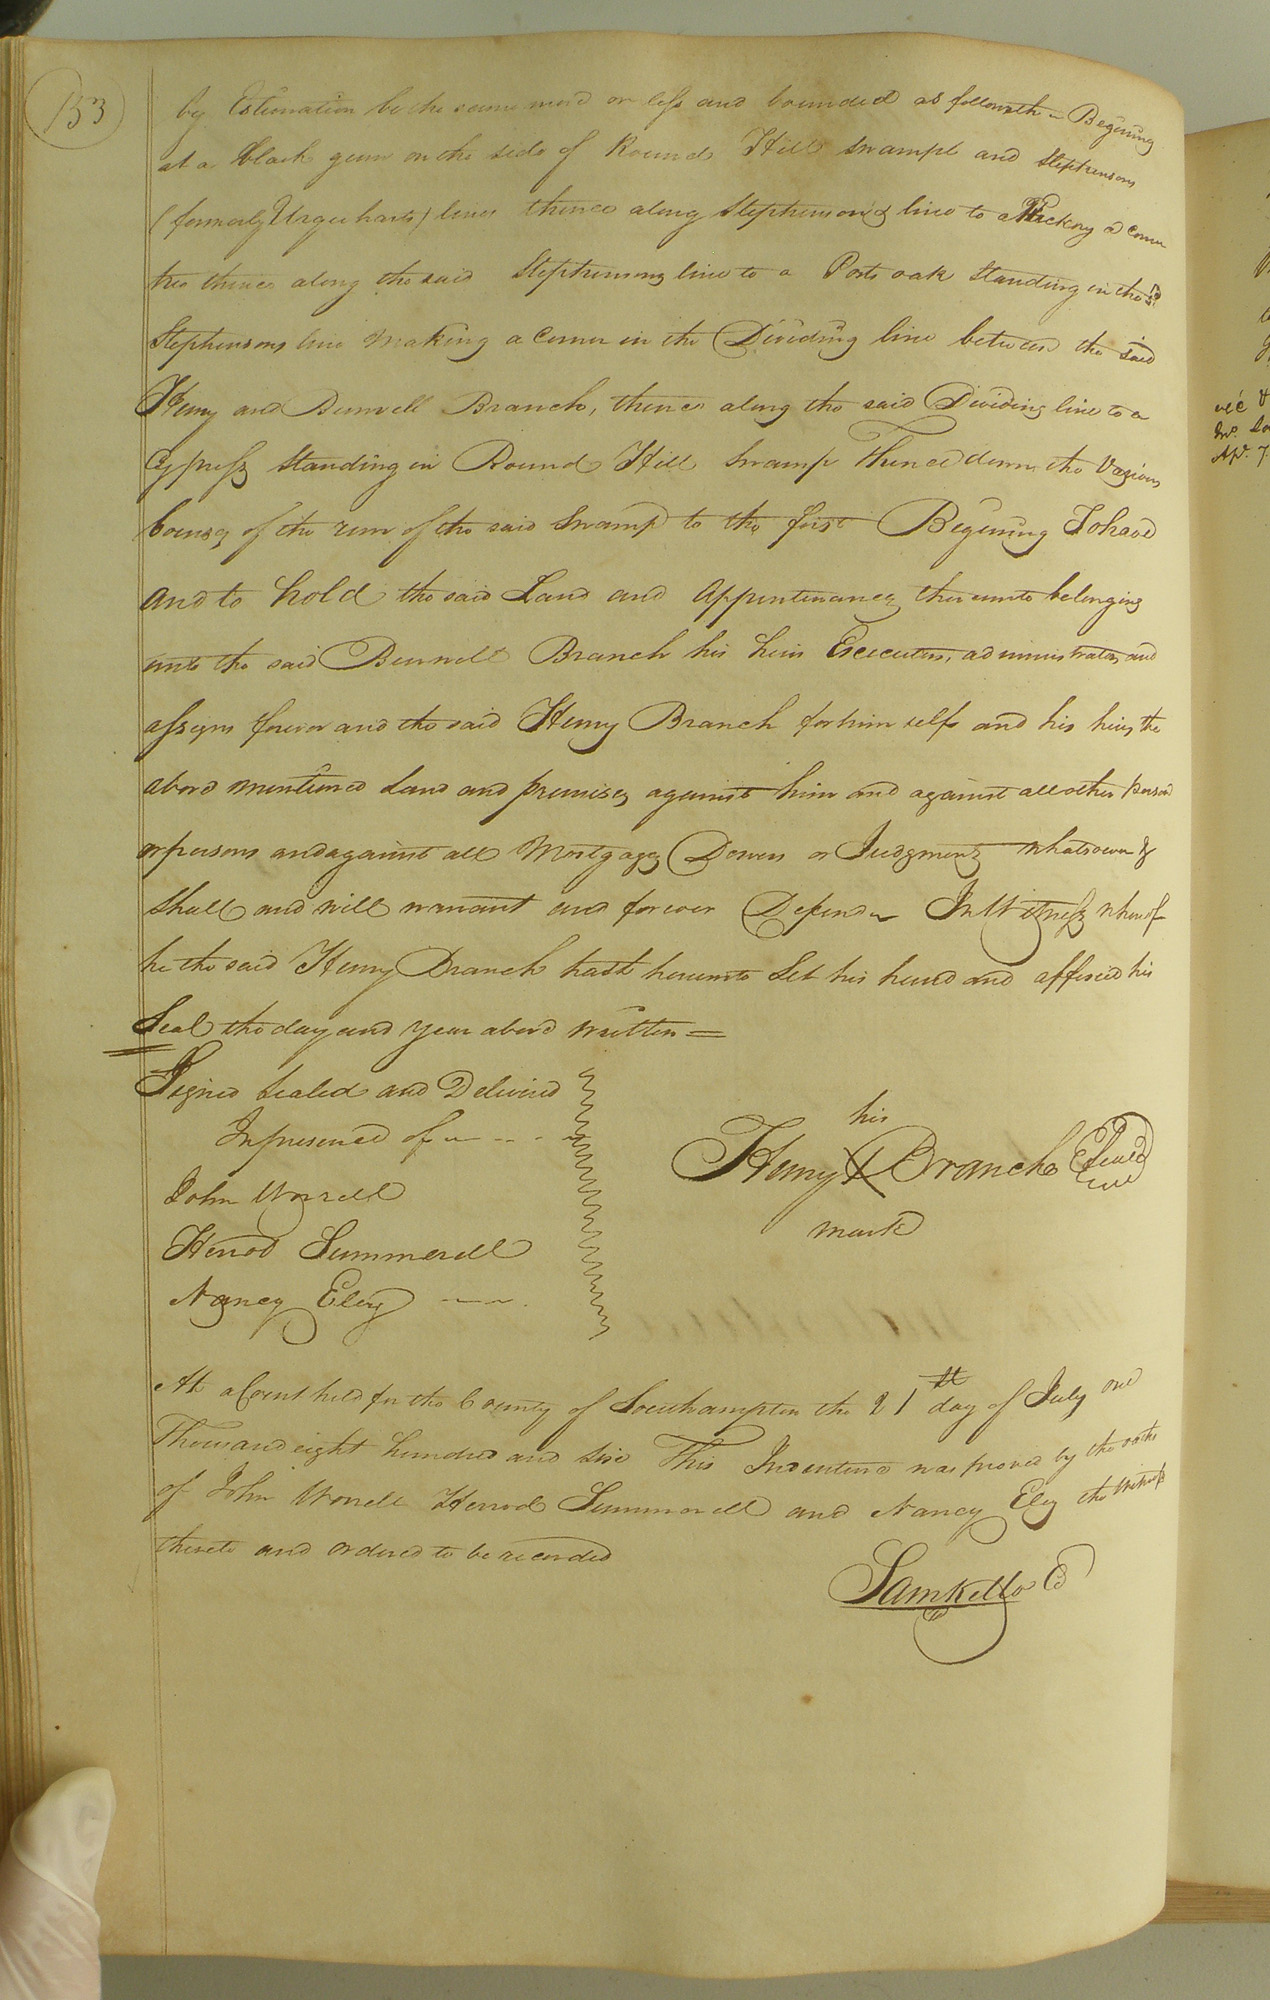 153
by Estimation be the same more or less and bounded as followeth - Begining
at a black gum on the side of Round Hill swamp and Stephensons
(formerly Urquharts) lines thence along Stephenson's line to a Hickory a corner
tree thence along the said Stephensons line to a Posts oak Standing in the sd.
Stephensons line Making a Corner in the Dividing line between the said
Henry and Burwell Branch, thence along the said Dividing line to a
Cypress Standing in Round Hill Swamp Thence down the Various
Courses of the run of the said Swamp to the first Begining To have
and to hold the said Land and Appurtenances thereunto belonging
unto the said Burwell Branch his heirs Executors, administrators and
assigns forever and the said Henry Branch for him self and his heirs the
above mentioned Land and premises against him and against all other person
or persons and against all Mortgages Dowers or Judgments whatsoever &
Shall and will warrant and forever Defend - In Witness whereof
he the said Henry Branch hath hereunto Set his hand and affixed his
Seal the day and year above written =
Signed Sealed and Delivered
In presence of
John Worrell
Herrod Summerell
Nancy Eley
his
Henry X Branch Seal
mark
At a Court held for the County of Southampton the 21st day of July one
Thousand eight hundred and six This Indenture was proved by the oaths
of John Worrell Herrod Summerell and Nancy Eley the Witness
thereto and ordered to be recorded
Sam Kello C